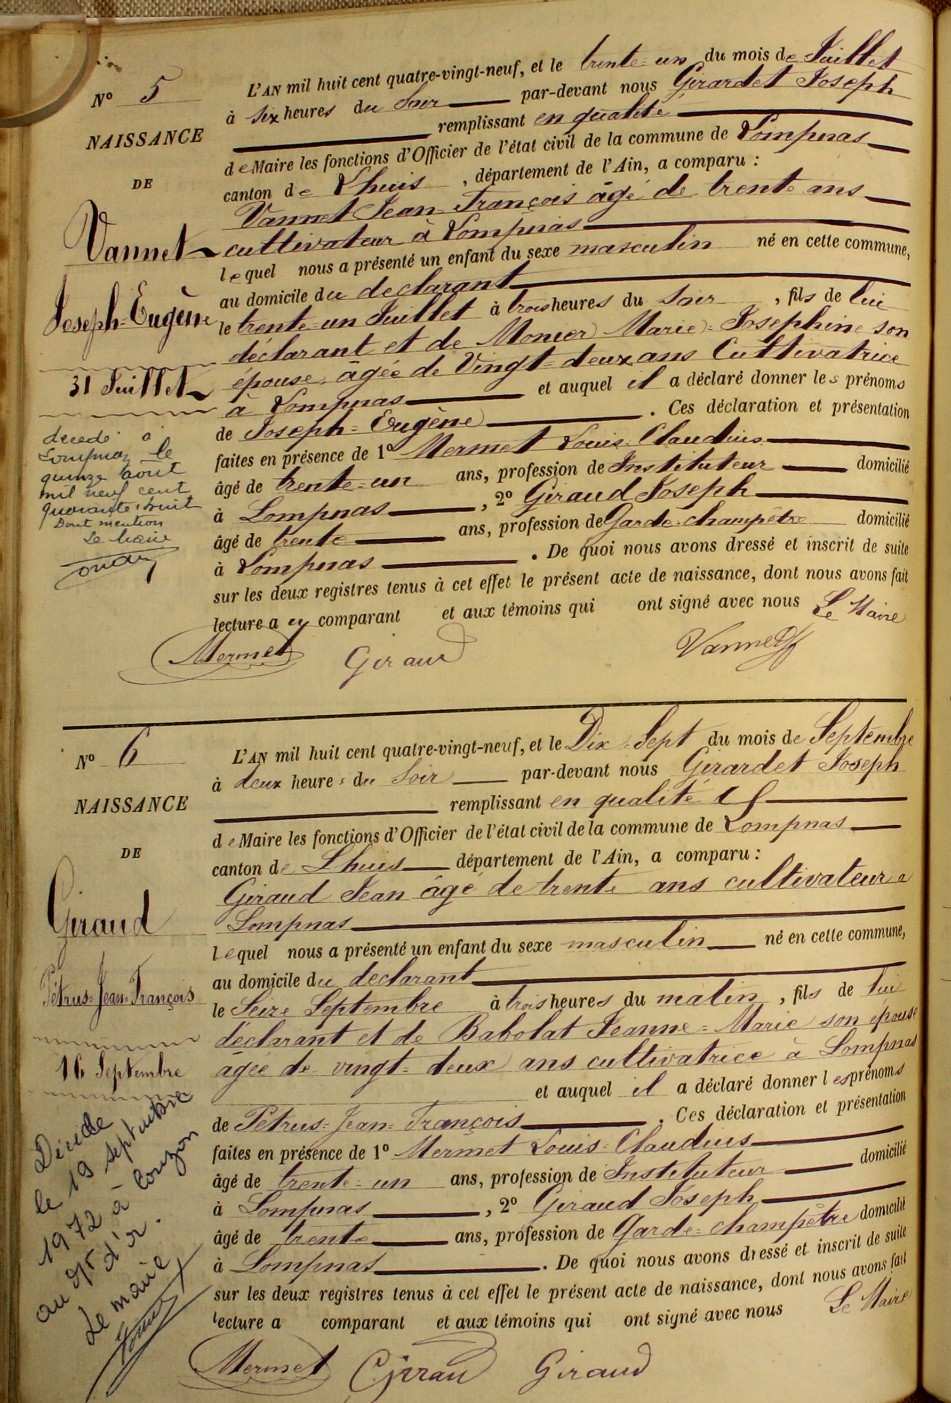 N° 5
NAISSANCE
DE
Vannet
Joseph=Eugène
31 Juillet
decede a
Lompnaz le
quinze aout
mil neuf cent
quarante huit
Dont mention
Le Maire
L'AN mil huit cent quatre-vingt-neuf, et le trente=un du mois de Juillet
à six heures du Soir par-devant nous Girardet Joseph
remplissant en qualité
de Maire les fonctions d'Officier de l'état civil de la commune de Lompnas
canton de Lhuis, département de l'Ain, a comparu :
Vannet Jean=François âgé de trente ans
cultivateur à Lompnas
lequel nous a présenté un enfant du sexe masculin né en cette commune,
au domicile du déclarant
le trente=un Juillet à trois heures du Soir, fils de lui
déclarant et de Monier Marie=Josephine son
épouse, âgée de Vingt=deux ans Cultivatrice
à Lompnas et auquel il a déclaré donner les prénoms
de Joseph=Eugène. Ces déclaration et présentation
faites en présence de 1° Mermet Louis=Claudius
âgé de trente=un ans, profession de Instituteur domicilié
à Lompnas, 2° Giraud Joseph
âgé de trente ans, profession de Garde-champêtre domicilié
à Lompnas. De quoi nous avons dressé et inscrit de suite
sur les deux registres tenus à cet effet le présent acte de naissance, dont nous avons fait
lecture a u comparant et aux témoins qui ont signé avec nous Le Maire
Mermet Giraud Vannet
N° 6
NAISSANCE
DE
Giraud
Pétrus=Jean=François
16 Septembre
Décédé
le 19 septembre
1972 à Couzon
au Mt d'Or.
Le maire
L'AN mil huit cent quatre-vingt-neuf, et le Dix=Sept du mois de Septembre
à deux heures du Soir par-devant nous Girardet Joseph
remplissant en qualité
de Maire les fonctions d'Officier de l'état civil de la commune de Lompnas
canton de Lhuis département de l'Ain, a comparu :
Giraud Jean âgé de trente ans cultivateur a
Lompnas
lequel nous a présenté un enfant du sexe masculin né en cette commune,
au domicile du déclarant
le Seize Septembre à trois heures du matin, fils de lui
déclarant et de Babolat Jeanne=Marie son épouse
âgée de vingt=deux ans cultivatrice à Lompnas
et auquel il a déclaré donner les prénoms
de Pétrus=Jean=François. Ces déclaration et présentation
faites en présence de 1° Mermet Louis=Claudius
âgé de trente=un ans, profession de Instituteur domicilié
à Lompnas, 2° Giraud Joseph
âgé de trente ans, profession de Garde=champêtre domicilié
à Lompnas. De quoi nous avons dressé et inscrit de suite
sur les deux registres tenus à cet effet le présent acte de naissance, dont nous avons fait
lecture a comparant et aux témoins qui ont signé avec nous Le Maire
Mermet Girau Giraud